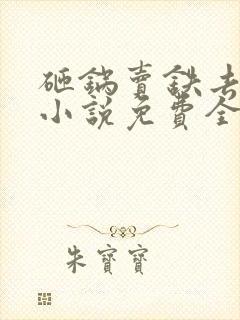 砸鍋賣鉄去
小說免費全
朱寶寶